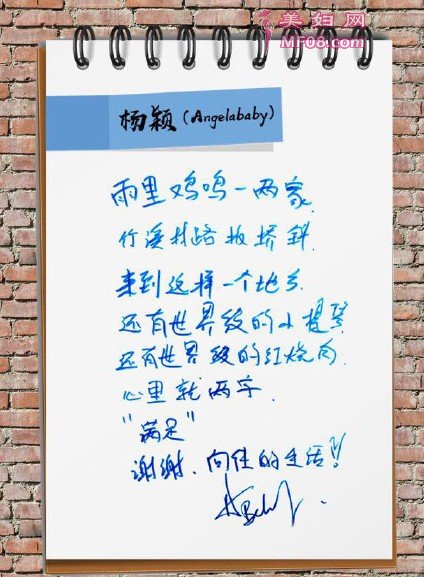 美妇网
MF08.com
杨颖(Angelababy)
雨里鸡鸣一两家
竹溪村路板桥斜.
来到这样一个地方
还有世界级的小提琴
还有世界级的红烧肉.
心里就两字.
“满足”
谢谢.向往的生活!!